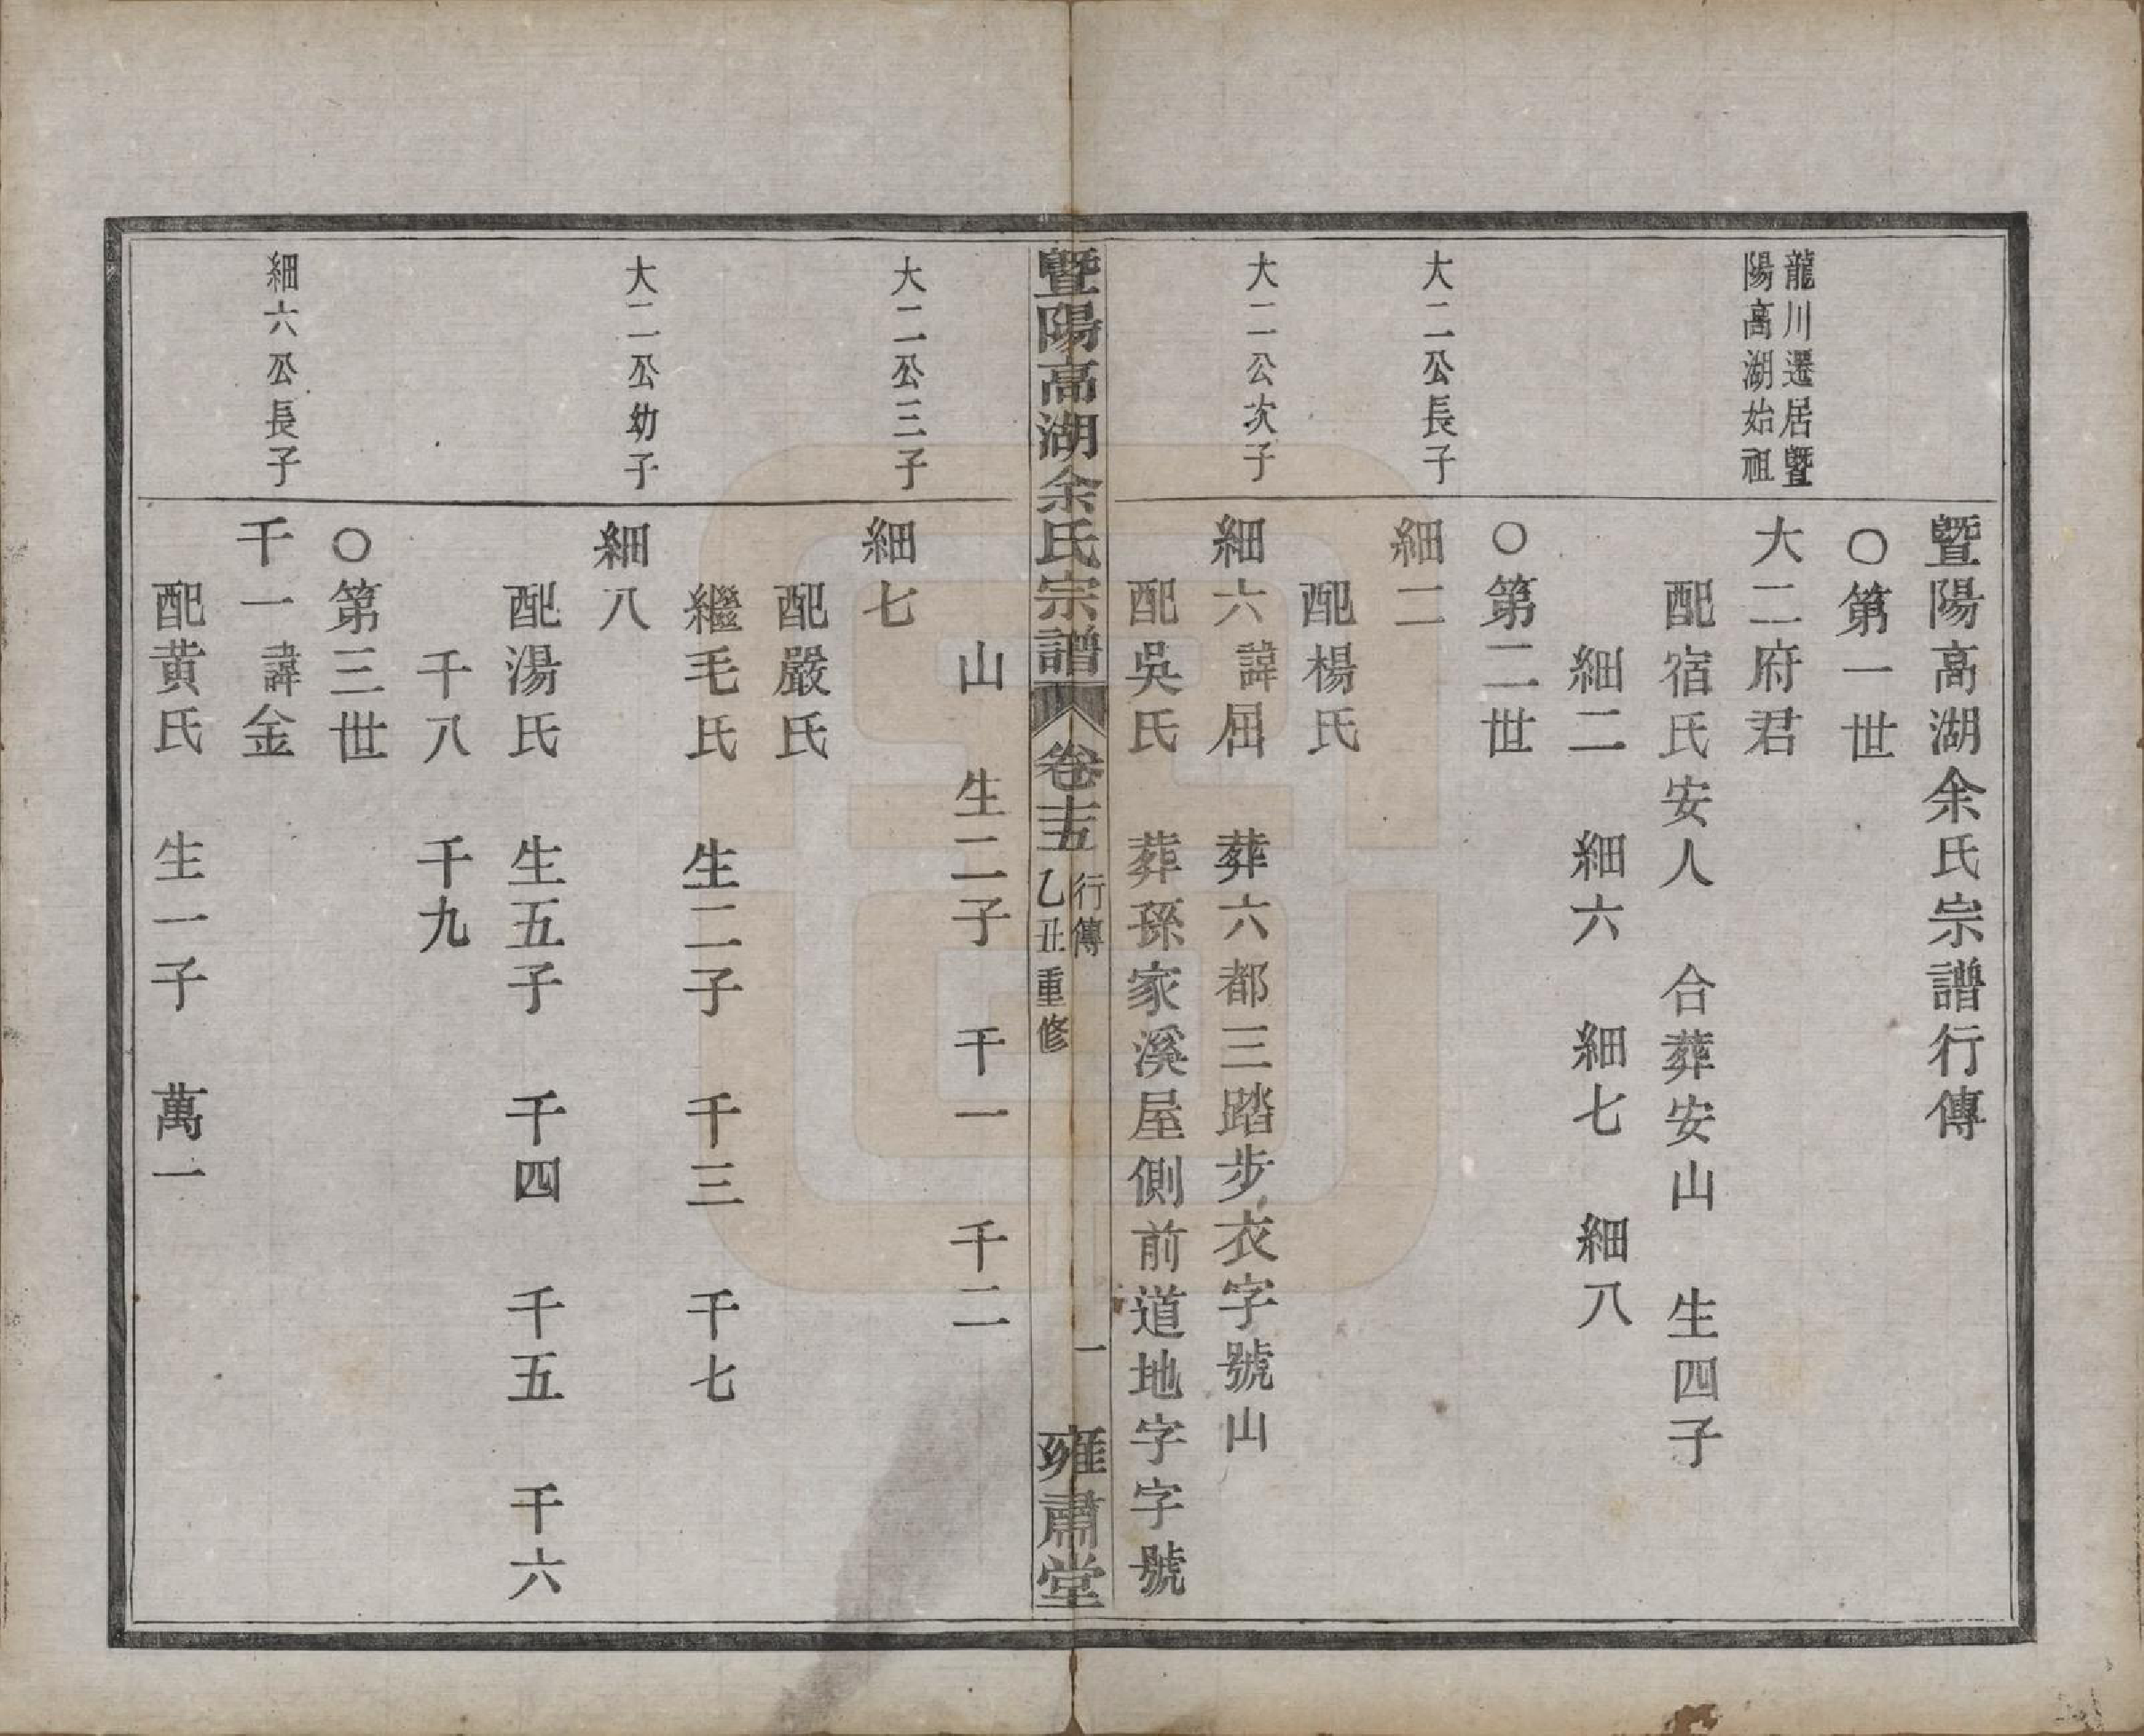 暨陽高湖余氏宗譜行傳
〇第一世
龍川遷居暨
陽高湖始祖
大二府君
配宿氏安人　合葬安山　生四子
細二　細六　細七　細八
〇第二世
大二公長子
細二
配楊氏
大二公次子
細六諱屈　葬六都三踏步衣字號山
配吳氏　葬孫家溪屋側前道地字字號
暨陽高湖余氏宗譜　卷十五　行傳　乙丑重修　一　雍肅堂
山　生二子　千一　千二
大二公三子
細七
配嚴氏
繼毛氏　生二子　千三　千七
大二公幼子
細八
配湯氏　生五子　千四　千五　千六
千八　千九
〇第三世
細六公長子
千一諱金
配黄氏　生一子　萬一